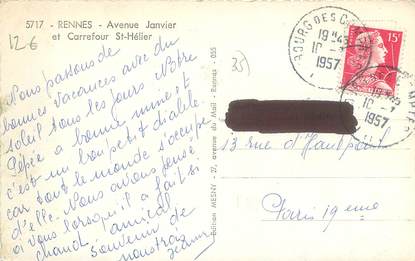 5717 - RENNES - Avenue Janvier
et Carrefour St-Hélier
12 €
Nous passons de
bonnes vacances avec du
soleil tous les jours. Notre
Pépée a bonne mine et
c'est un vrai petit diable
car tout le monde s'occupe
d'elle. Nous avons pensé
à vous lorsqu'il a fait si
chaud. amical
souvenir de
nous trois
35
Edition MESNY - 27, avenue du Mail - Rennes - 035
BOURG DES C
19 H 45
10 - 7
1957
15F
10 - 7
1957
13 rue d'Hautpoul
Paris 19eme